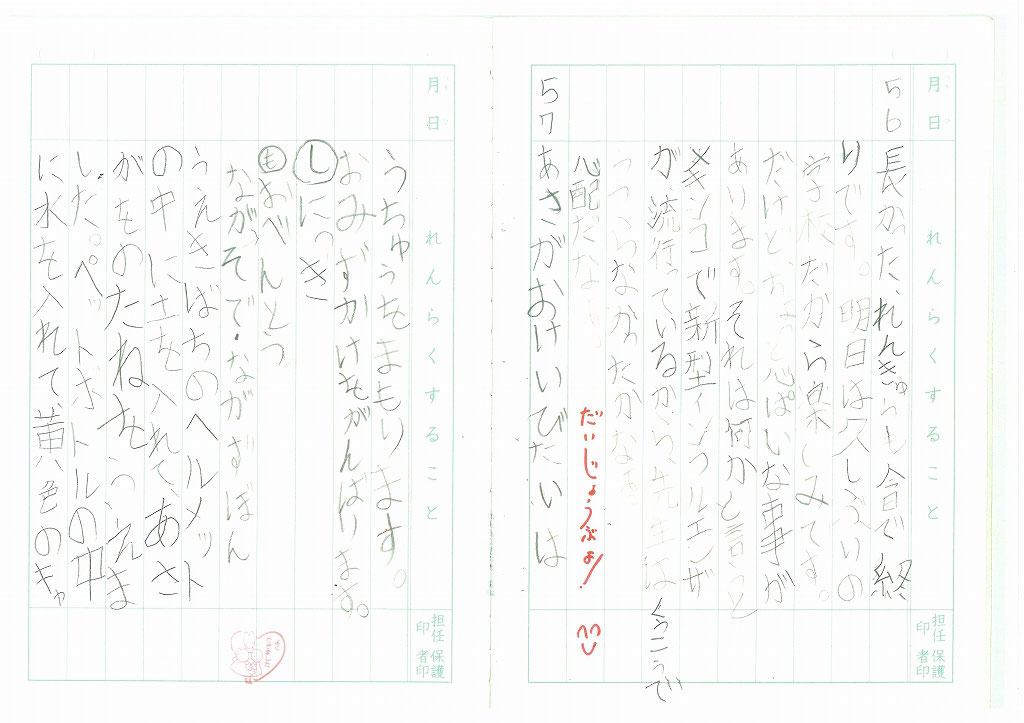 月 日
れんらくすること
担任印 保護者印
5 6
長かった、れんきゅうも今日で終
りです。明日は久しぶりの
学校だから楽しみです。
だけどちょっと心ぱいな事が
あります。それは何かと言うと
メキシコで新型インフルエンザ
が、流行っているから先生は くうこうで
うつらなかったかなあ
心配だな
だいじょうぶよ!
5 7
あさがおけいびたいは
月 日
れんらくすること
担任印 保護者印
うちゅうをまもります。
おみずかけをがんばります。
し にっき
も おべんとう
ながそで・ながずぼん
うえきばちのヘルメット
の中に土を入れて、あさ
がをのたねをうえま
した。ペットボトルの中
に水を入れて、黄色のキャ